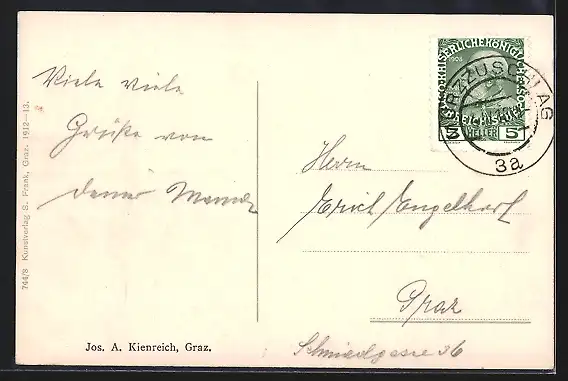 Viele viele
Grüße von
Deiner
744/8 Kunstverlag S. Frank, Graz. 1912—13.
Jos. A. Kienreich, Graz.
KAISERLICHE KÖNIGLICHE
1908
5 HELLER 5
MÜRZZUSCHLAG
3a
Herrn
Erich Engelhart
Graz
Schmiedgasse 36